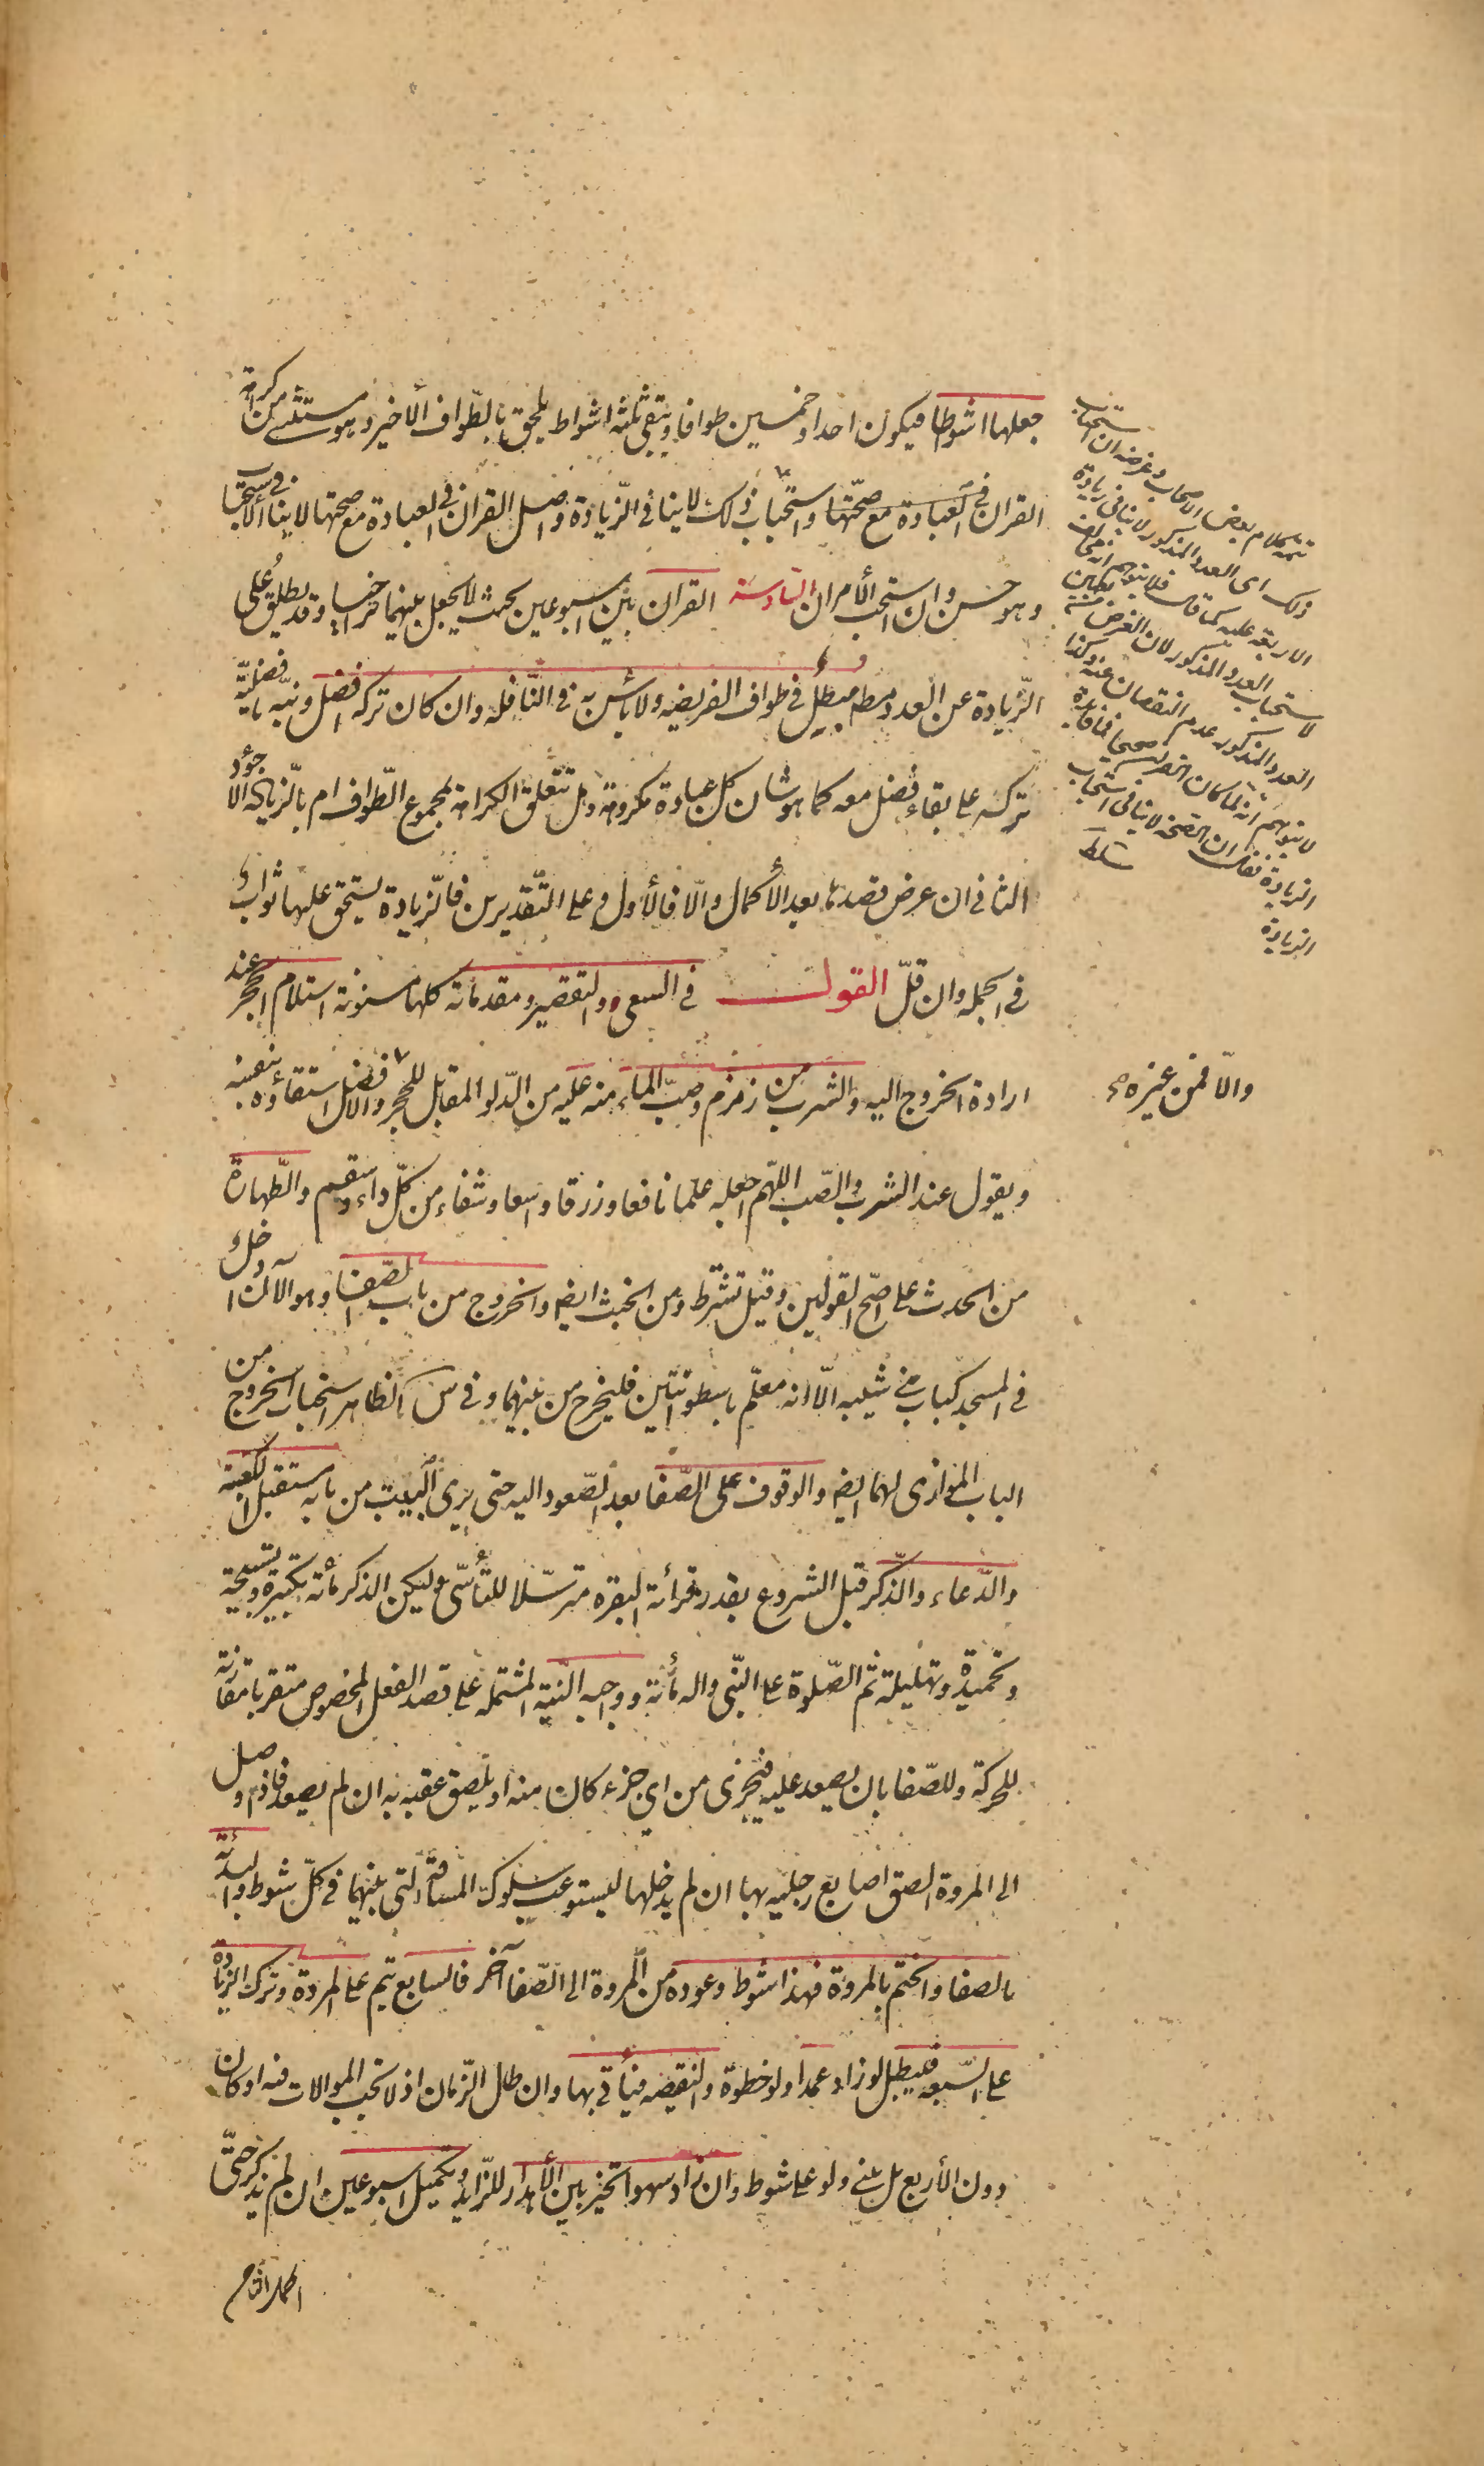 جعلها اشواطا فيكون احدا وخمسين طوافا ويبقى ثلثة اشواط يلحق بالطّواف الأخير وهو مستثنى من كراهة
القران فى العبادة مع صحّتها واستحباب ذلك لا ينافى الزّيادة واصل القران فى العبادة مع صحتها لا ينافى الاستحباب
وهو حسن وان استحب الأمران السّادسة القران بين اسبوعين بحيث لا يجعل بينهما تراخيا وقد يطلق على
الزّيادة عن العدد مطم مبطل فى طواف الفريضه ولا بأس به فى النّافله وان كان تركه افضل ونبّه بافضليّة
تركه على بقاء فضل معه كما هو شان كل عبادة مكروهة وهل تتعلق الكراهة بمجموع الطّواف ام بالزّيادة الاجود
الثانى ان عرض قصدها بعد الأكمال والّا فالأول وعلى التّقديرين فالزّيادة يستحق عليها ثواب
فى الجملة وان قلّ القول فى السعى والتقصير ومقدماته كلها مسنونة استلام الحجر عند
ارادة الخروج اليه والشرب من زمزم وصبّ الماء منه عليه من الدّلو المقابل للحجر والافضل استقاؤه بنفسه
ويقول عند الشرب والصّب اللهمّ اجعله علما نافعا ورزقا واسعا وشفاء من كلّ داء وسقم والطّهارة
من الحدث على اصحّ القولين وقيل تشترط ومن الخبث ايضا والخروج من باب الصّفا وهو الآن داخل
فى المسجد كباب بنى شيبه الّا انه معلّم باسطوانتين فليخرج من بينهما وفى س الظاهر استحباب الخروج من
الباب الموازى لهما ايضا والوقوف على الصّفا بعد الصّعود اليه حتى يرى البيت من بابه مستقبل الكعبة
والدّعاء والذّكر قبل الشروع بقدر قرائة البقره مترسّلا للتأسّى وليكن الذكر مأة تكبيرة وتسبيحة
وتحميدة وتهليلة ثم الصّلوة على النّبى واله مأة وواجبه النّية المشتمله على قصد الفعل المخصوص متقربا مقارنة
للحركة وللصّفا بان يصعد عليه فيجزى من اى جزء كان منه او يلصق عقبه به ان لم يصعد فاذا وصل
الى المروة الصق اصابع رجليه بها ان لم يدخلها ليستوعب سلوك المسافة التى بينهما فى كلّ شوط والبدأة
بالصفا والختم بالمروة فهذا شوط وعوده من المروة الى الصّفا آخر فالسابع يتم على المروة وترك الزيادة
على السّبعه فيبطل لو زاد عمدا ولو خطوة والنقيصه فيأتى بها وان طال الزّمان اذ لا تجب الموالات فيه او كان
دون الأربع بل يبنى ولو على شوط وان زاد سهوا تخير بين الأهدار للزّايد وتكميل اسبوعين ان لم يذكر حتّى
اكمل الثامن
تتمة كلام بعض الاصحاب وغرضه ان استحباب
ذلك اى العدد المذكور لا ينافى زيادة
الاربعة عليه كما قال فلا يتوهم انه مخالف
لاستحباب العدد المذكور لان الغرض
العدد المذكور عدم النقصان عنه وكذا
لا يتوهم انه لما كان
الزيادة فقال ان الصحة لا ينافى استحباب
الزيادة
والّا فمن غيره صح